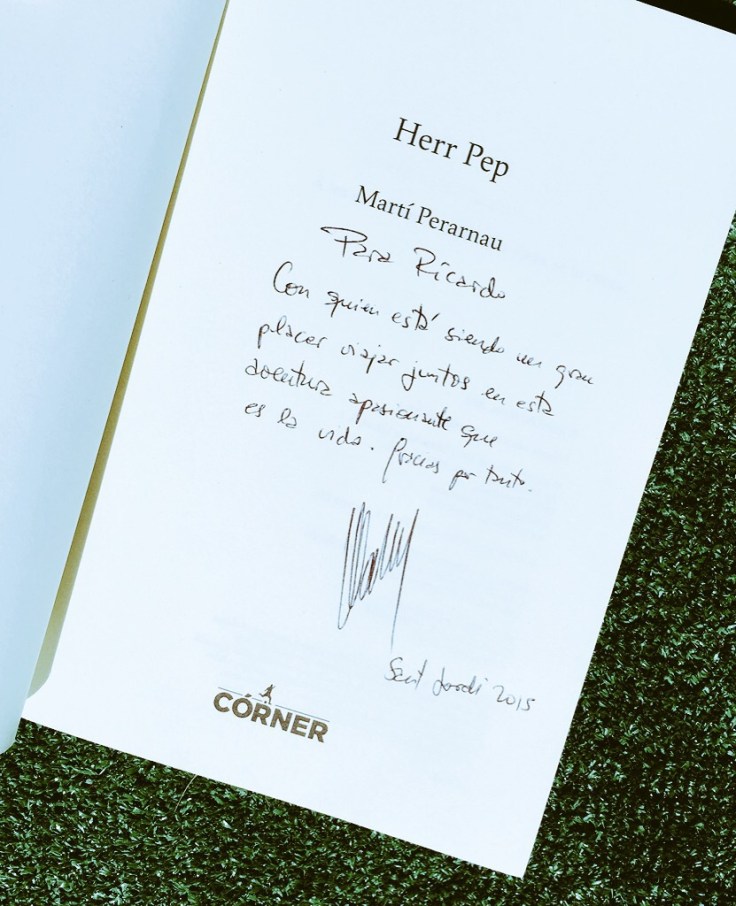 Herr Pep
Martí Perarnau
Para Ricardo
Con quien está siendo un gran
placer viajar juntos en esta
aventura apasionante que
es la vida. Gracias por tanto.
Sant Jordi 2015
CÓRNER